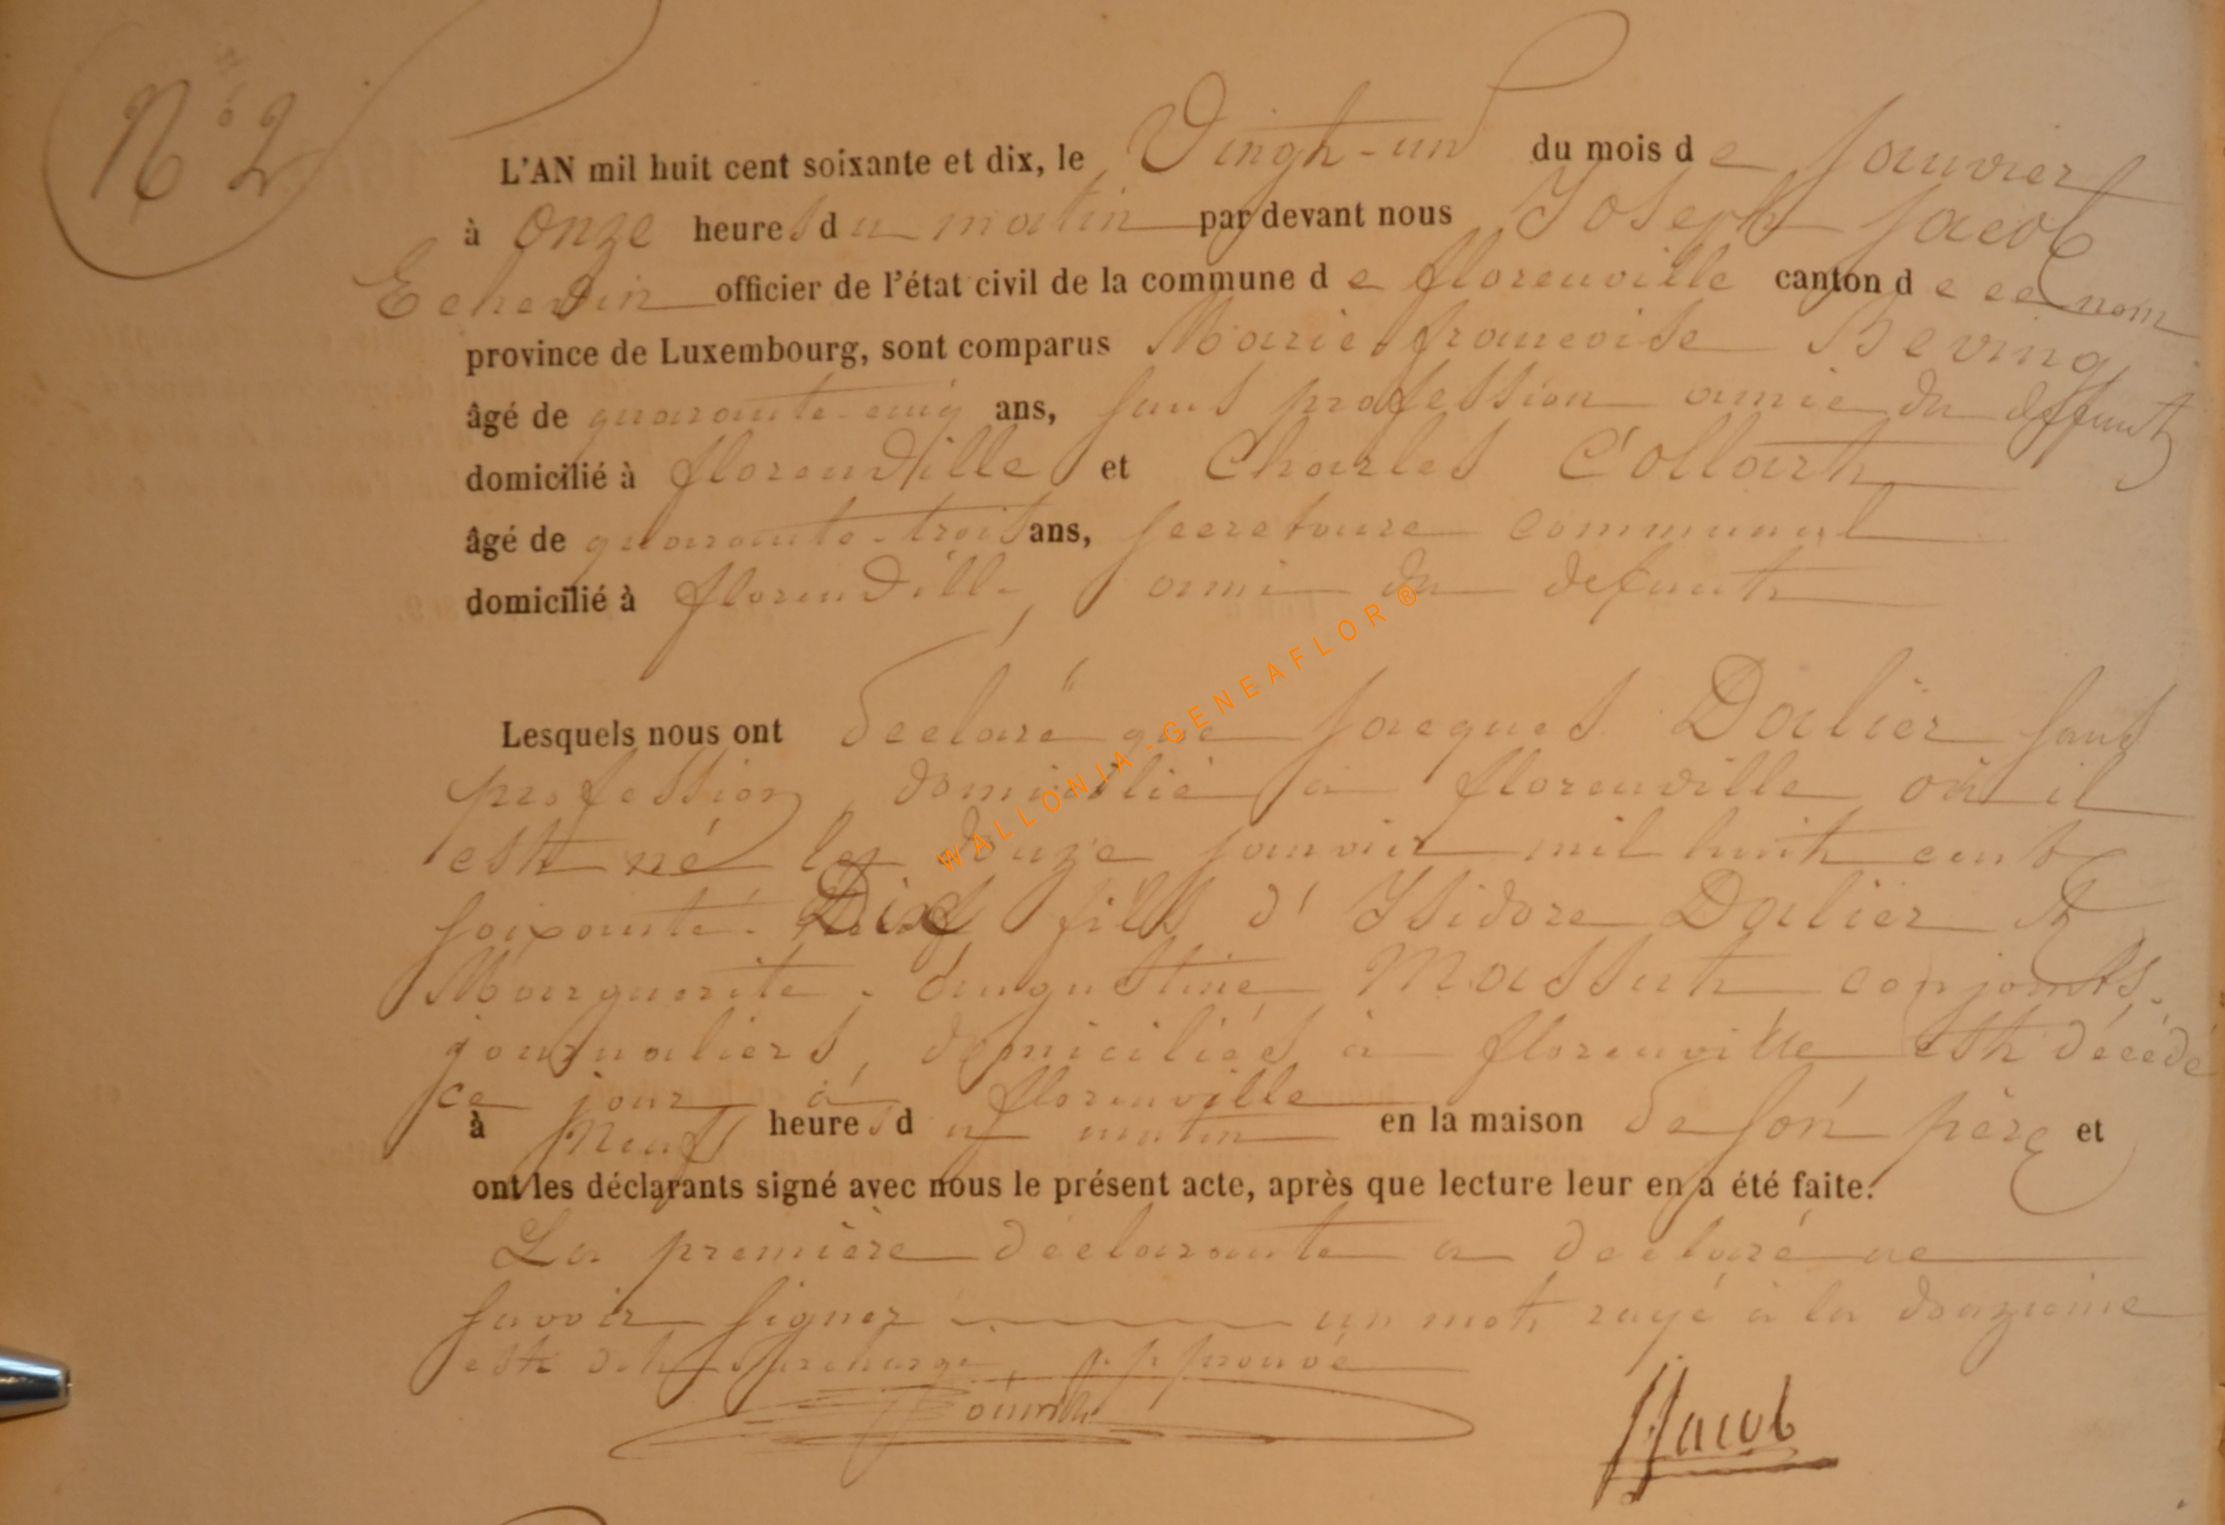 N° 2
L'AN mil huit cent soixante et dix, le Vingt-un du mois de Janvier
à Onze heures du matin par devant nous Joseph Jacob
Echevin officier de l'état civil de la commune de florenville canton de ce nom
province de Luxembourg, sont comparus Marie françoise Beving
âgé de quarante-cinq ans, sans profession amie du deffunt
domicilié à florenville et Charles Collart
âgé de quarante-trois ans, secretaire communal
domicilié à florenville, ami du defunt
Lesquels nous ont declaré que Jacques Dalier sans
profession, domicilié à florenville où il
est né le douze janvier mil huit cent
soixante Dix fils d'Isidore Dalier et
Marguerite-Augustine Massut conjoints,
journaliers, domiciliés à florenville est décédé
ce jour à florenville
à Neuf heures du matin en la maison de son père et
ont les déclarants signé avec nous le présent acte, après que lecture leur en a été faite.
La première déclarante a declaré ne
savoir signer un mot rayé à la douzieme
est dit surchargé approuvé
JJacob
WALLONIA-GENEAFLOR ®